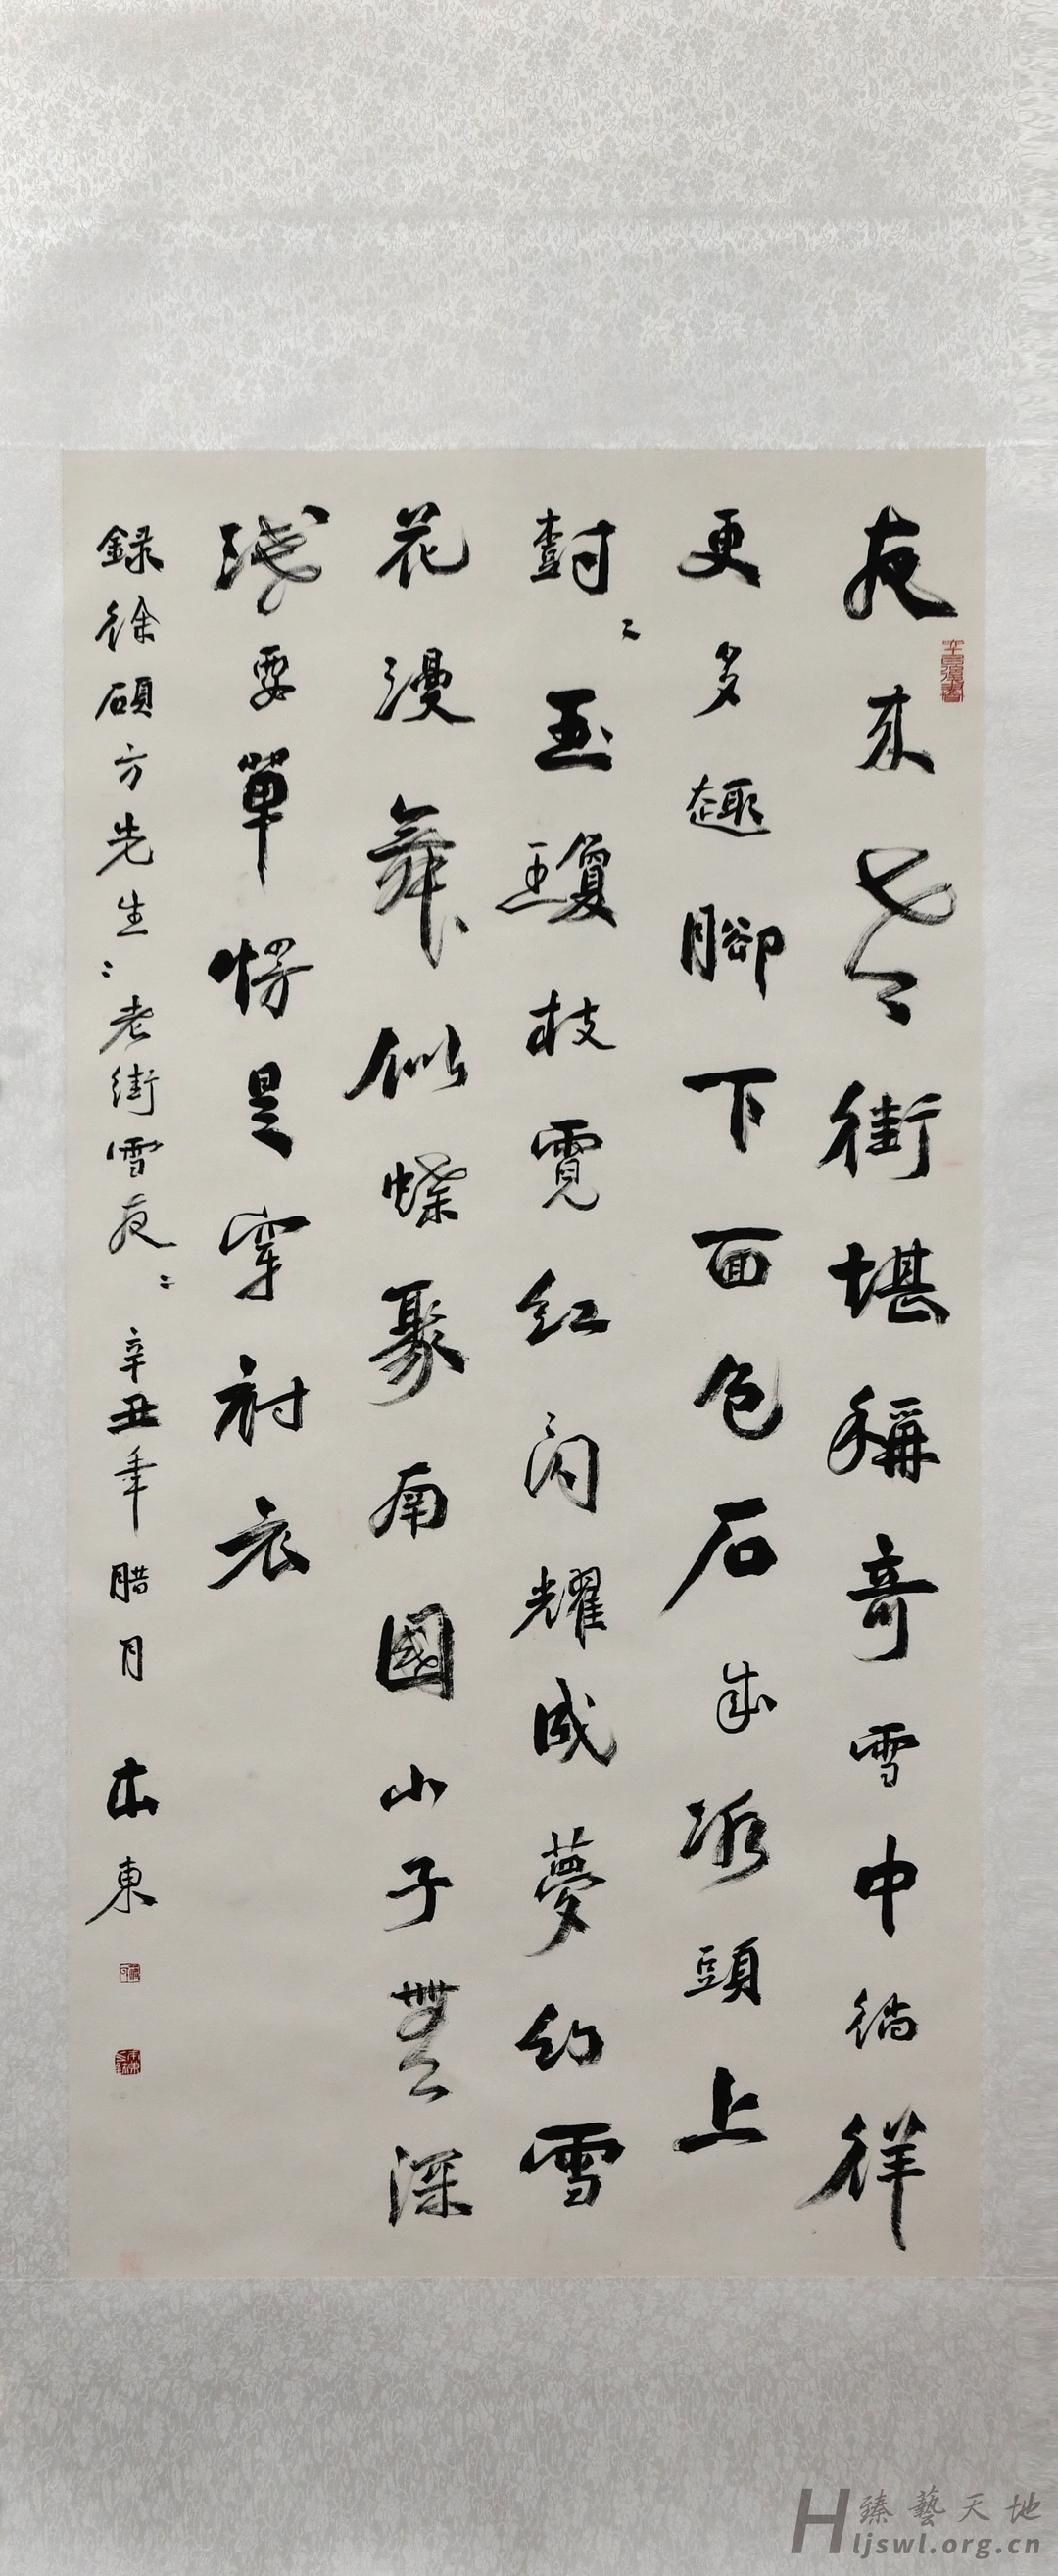 夜來老街堪稱奇雪中徜徉
更多趣腳下面包石成冰頭上
樹〻玉瓊枝霓紅闪耀成夢幻雪
花漫舞似蝶聚南國小子無深
淺要單愣是穿衬衣
錄徐碩方先生〻老街雪夜〻辛丑年腊月 東
臻藝天地
ljswl.org.cn